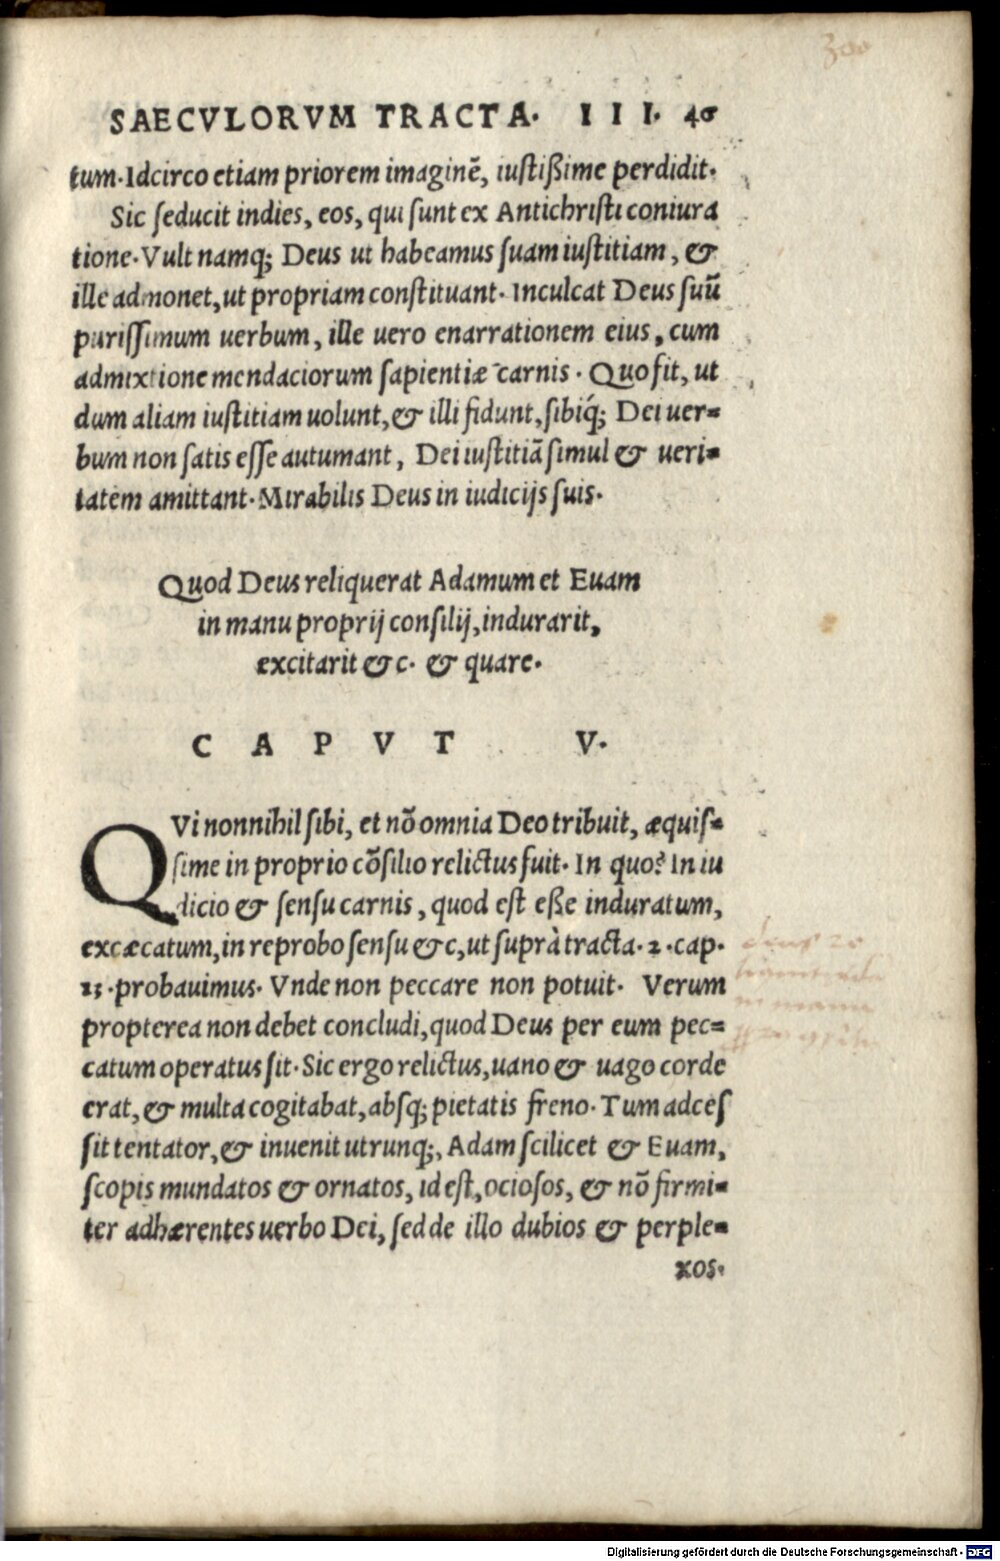 300
SAECVLORVM TRACTA. III. 46
tum. Idcirco etiam priorem imaginē, iustißime perdidit.
Sic seducit indies, eos, qui sunt ex Antichristi coniura
tione. Vult namq; Deus ut habeamus suam iustitiam, &
ille admonet, ut propriam constituant. Inculcat Deus suū
purissimum uerbum, ille uero enarrationem eius, cum
admixtione mendaciorum sapientiæ carnis. Quo fit, ut
dum aliam iustitiam uolunt, & illi fidunt, sibiq́; Dei uer=
bum non satis esse autumant, Dei iustitiā simul & ueri=
tatem amittant. Mirabilis Deus in iudicijs suis.
Quod Deus reliquerat Adamum et Euam
in manu proprij consilij, indurarit,
excitarit &c. & quare.
CAPVT V.
QVi nonnihil sibi, et nō omnia Deo tribuit, æquis=
sime in proprio cōsilio relictus fuit. In quo? In iu
dicio & sensu carnis, quod est eße induratum,
excæcatum, in reprobo sensu &c, ut suprà tracta. 2. cap.
23. probauimus. Vnde non peccare non potuit. Verum
propterea non debet concludi, quod Deus per eum pec=
catum operatus sit. Sic ergo relictus, uano & uago corde
erat, & multa cogitabat, absq; pietatis freno. Tum adces
sit tentator, & inuenit utrunq;, Adam scilicet & Euam,
scopis mundatos & ornatos, id est, ociosos, & nō firmi=
ter adhærentes uerbo Dei, sed de illo dubios & perple=
xos.
Digitalisierung gefördert durch die Deutsche Forschungsgemeinschaft - DFG